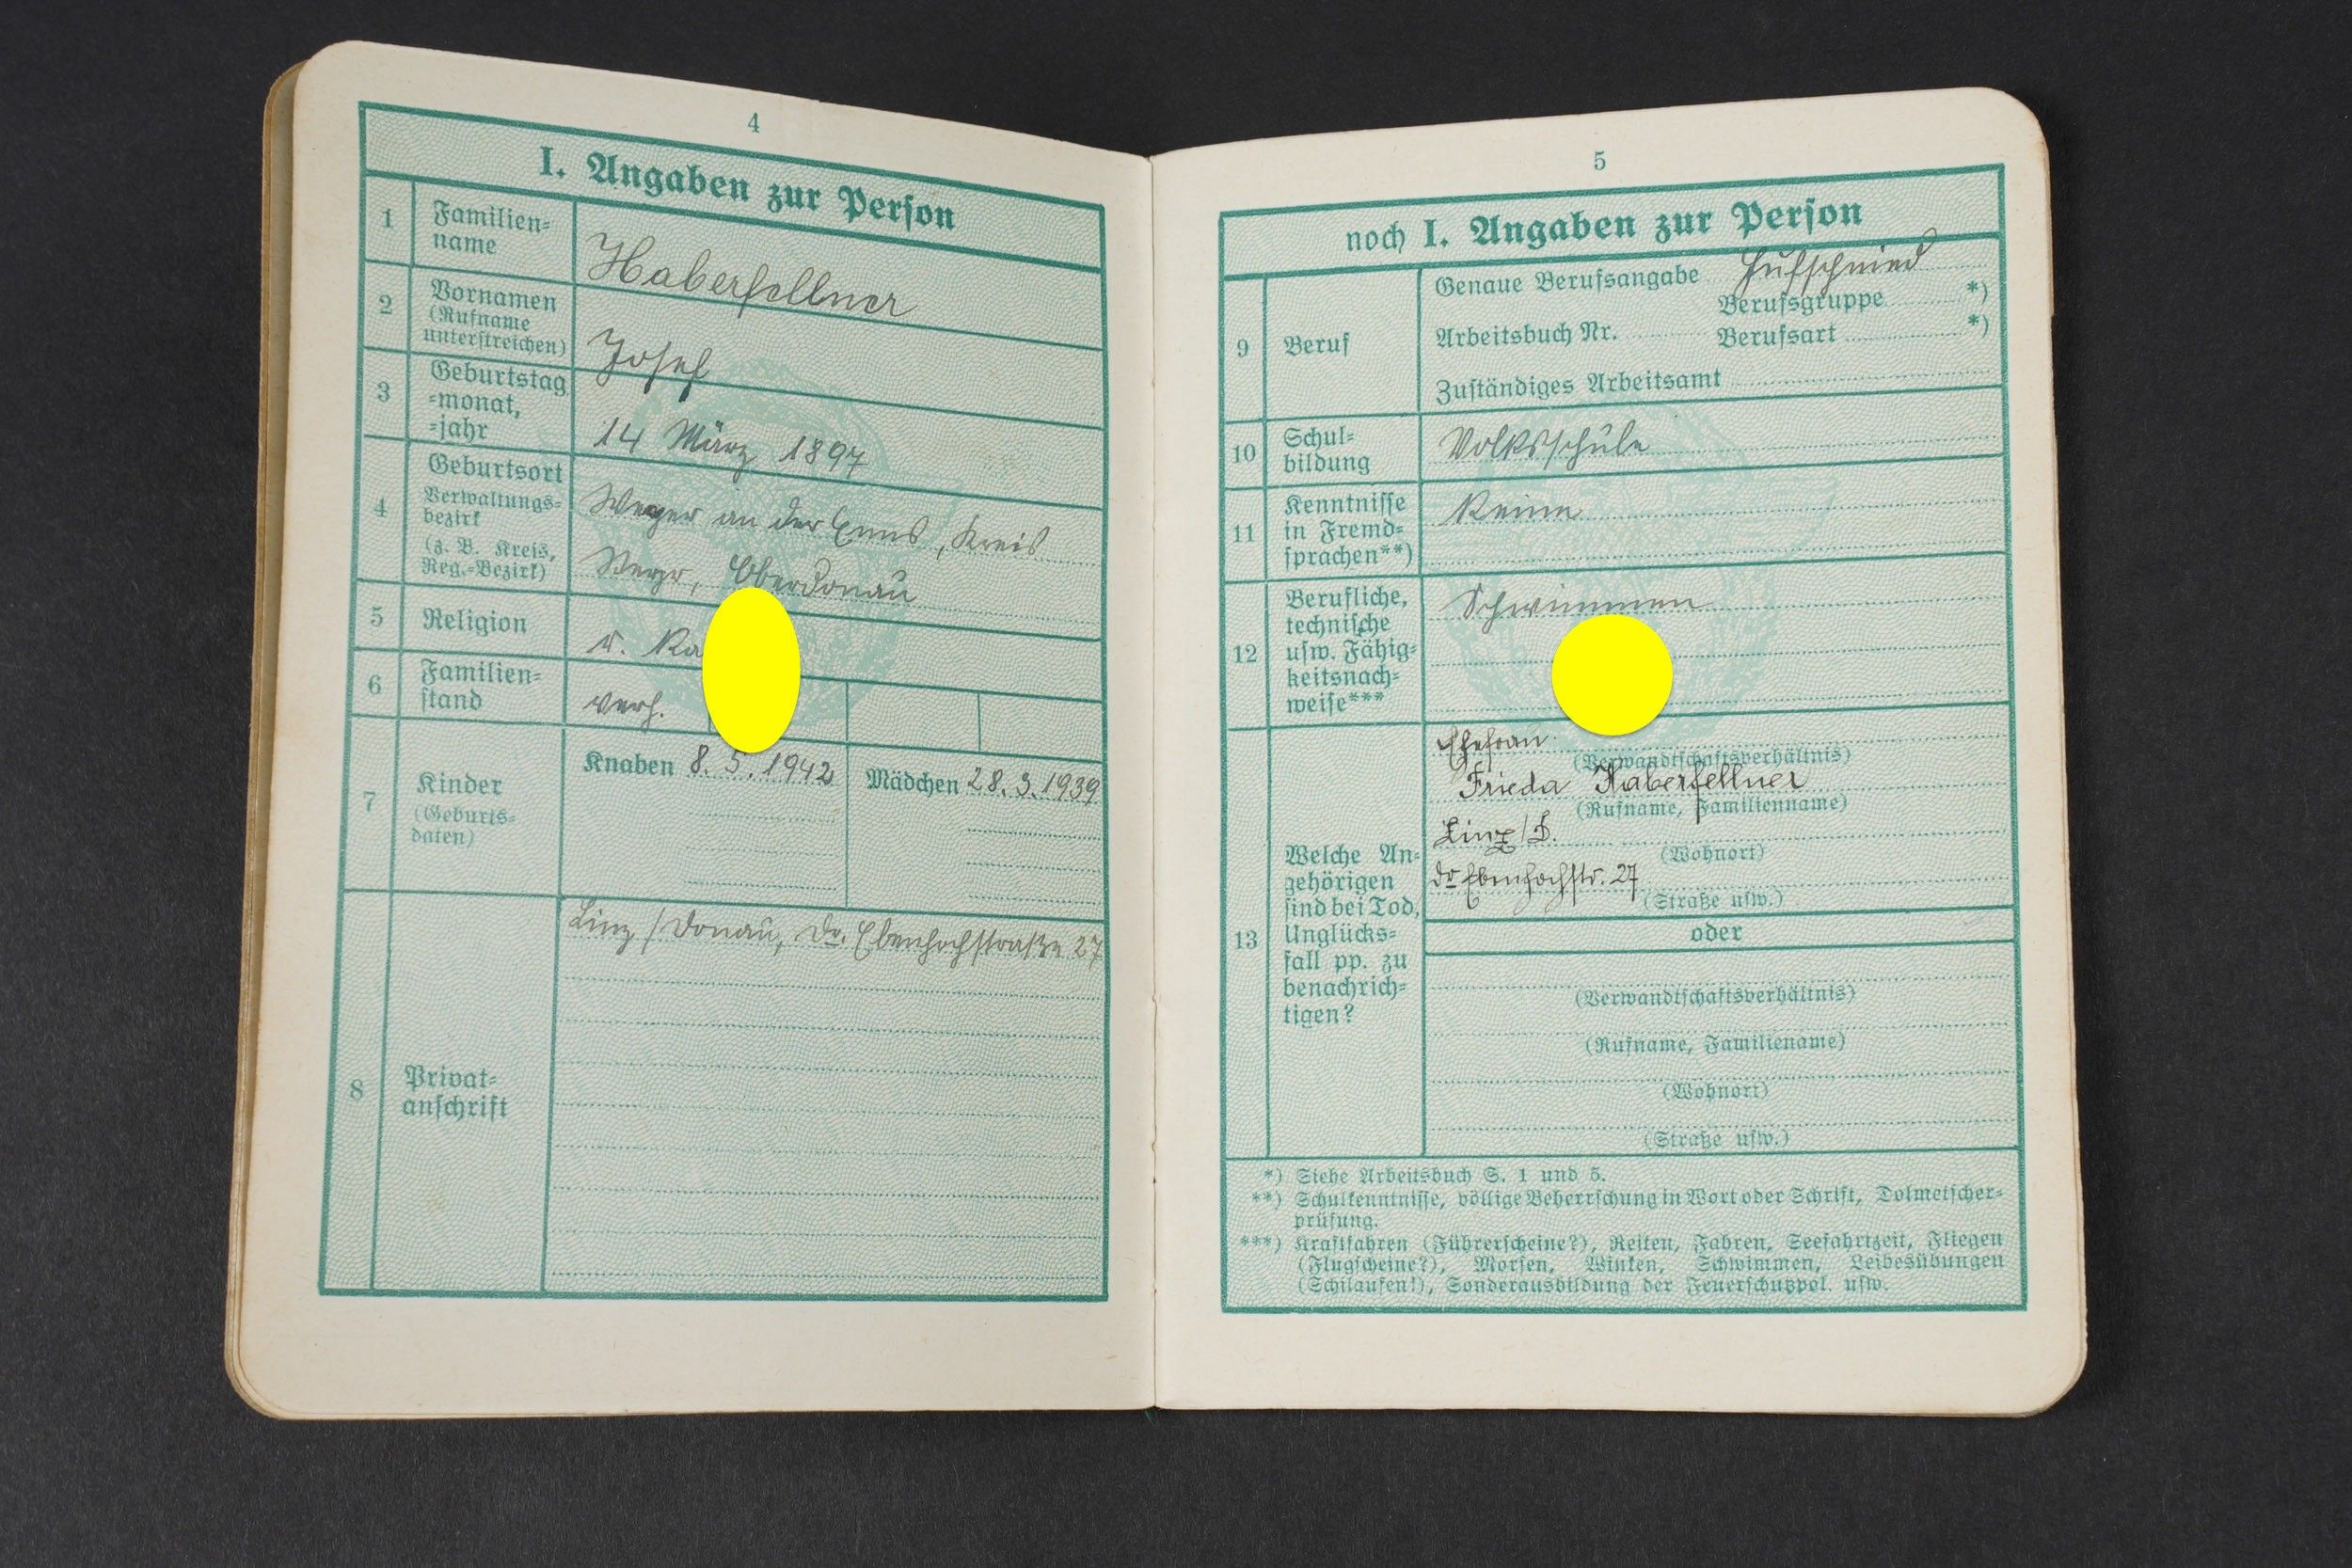 4
I. Angaben zur Person
1 Familien=
name
Haberfellner
2 Vornamen
(Rufname
unterstreichen)
Josef
3 Geburtstag
=monat,
=jahr
14 März 1897
4 Geburtsort
Verwaltungs=
bezirk
(z. B. Kreis,
Reg.=Bezirk)
Weyer an der Enns, Kreis
Steyr, Oberdonau
5 Religion
r. Ka
6 Familien=
stand
verh.
7 Kinder
(Geburts=
daten)
Knaben 8.5.1942
Mädchen 28.3.1939
8 Privat=
anschrift
Linz / Donau, Dr. Ebenhochstraße 27
5
noch I. Angaben zur Person
9 Beruf
Genaue Berufsangabe Hufschmied
Berufsgruppe *)
Arbeitsbuch Nr. Berufsart *)
Zuständiges Arbeitsamt
10 Schul=
bildung
Volksschule
11 Kenntnisse
in Fremd=
sprachen**)
Keine
12 Berufliche,
technische
usw. Fähig=
keitsnach=
weise***
Schwimmen
13 Welche An=
gehörigen
sind bei Tod,
Unglücks=
fall pp. zu
benachrich=
tigen?
Ehefrau
(Verwandtschaftsverhältnis)
Frieda Haberfellner
(Rufname, Familienname)
Linz/D.
(Wohnort)
Dr Ebenhochstr. 27
(Straße usw.)
oder
(Verwandtschaftsverhältnis)
(Rufname, Familiename)
(Wohnort)
(Straße usw.)
*) Siehe Arbeitsbuch S. 1 und 5.
**) Schulkenntnisse, völlige Beherrschung in Wort oder Schrift, Dolmetscher=
prüfung.
***) Kraftfahren (Führerscheine?), Reiten, Fahren, Seefahrtzeit, Fliegen
(Flugscheine?), Morsen, Winken, Schwimmen, Leibesübungen
(Schilaufen!), Sonderausbildung der Feuerschutzpol. usw.